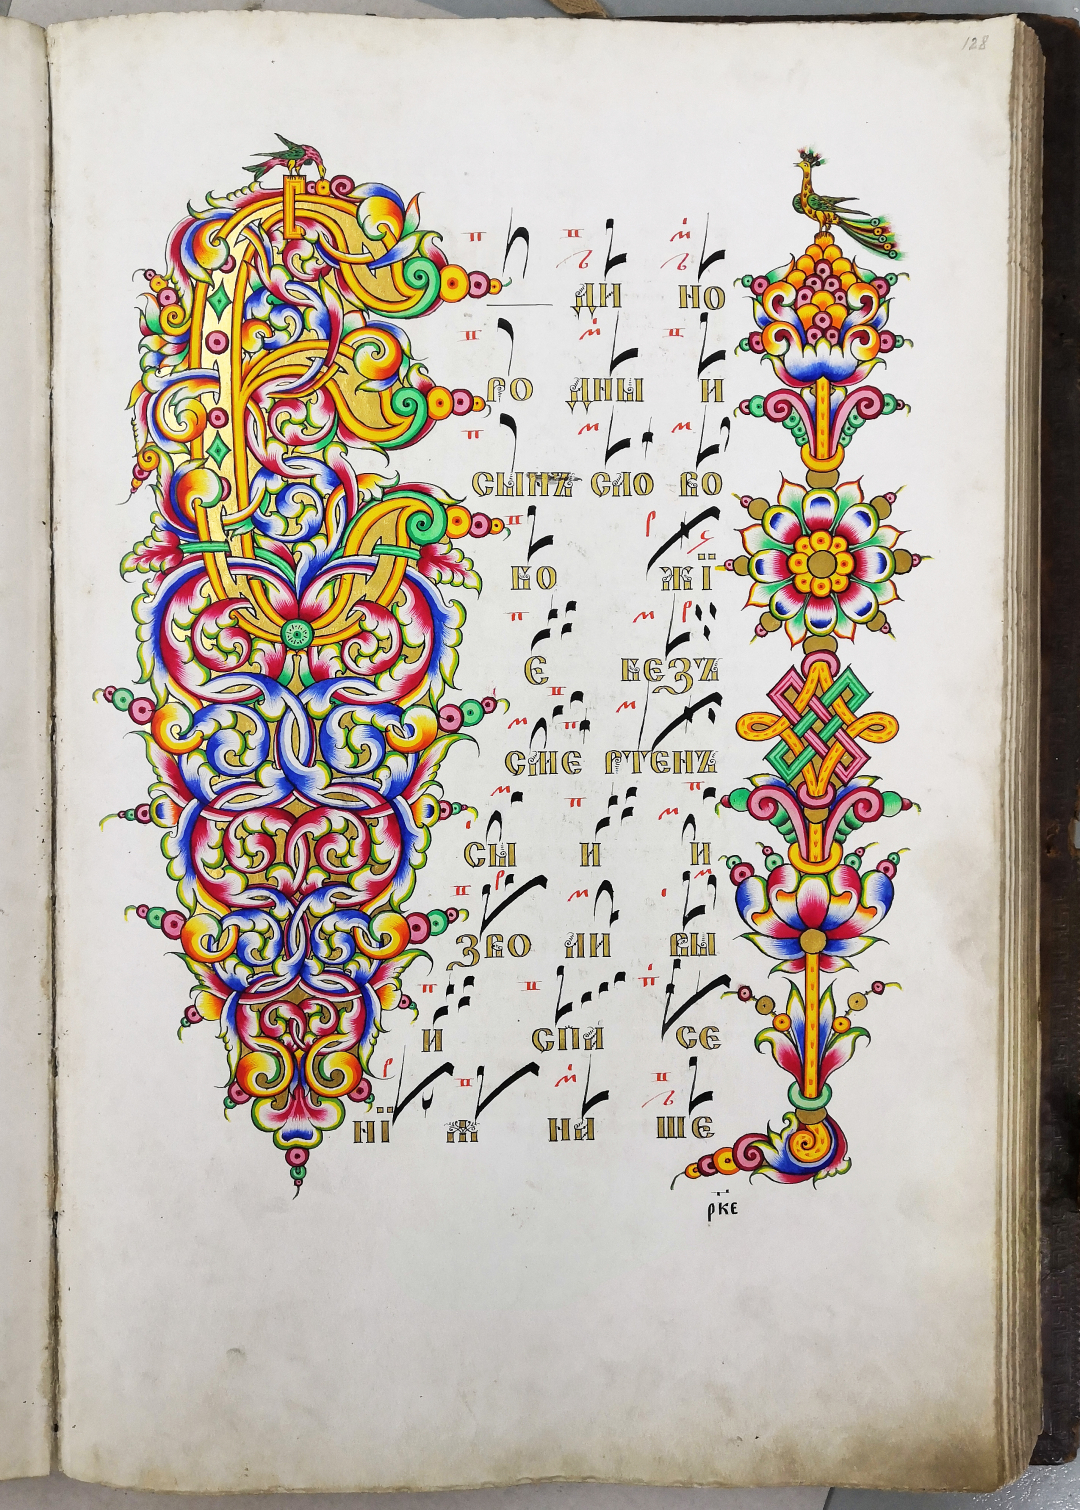 128
Є ДИ НО
РО ДНЫ И
СЫНЪ СЛО ВО
БО ЖЇ
Є БЕЗЪ
СМЕ РТЕНЪ
СЫ И И
ЗВО ЛИ ВЫ
И СПА СЕ
НЇ Ѧ НА ШЕ
рке